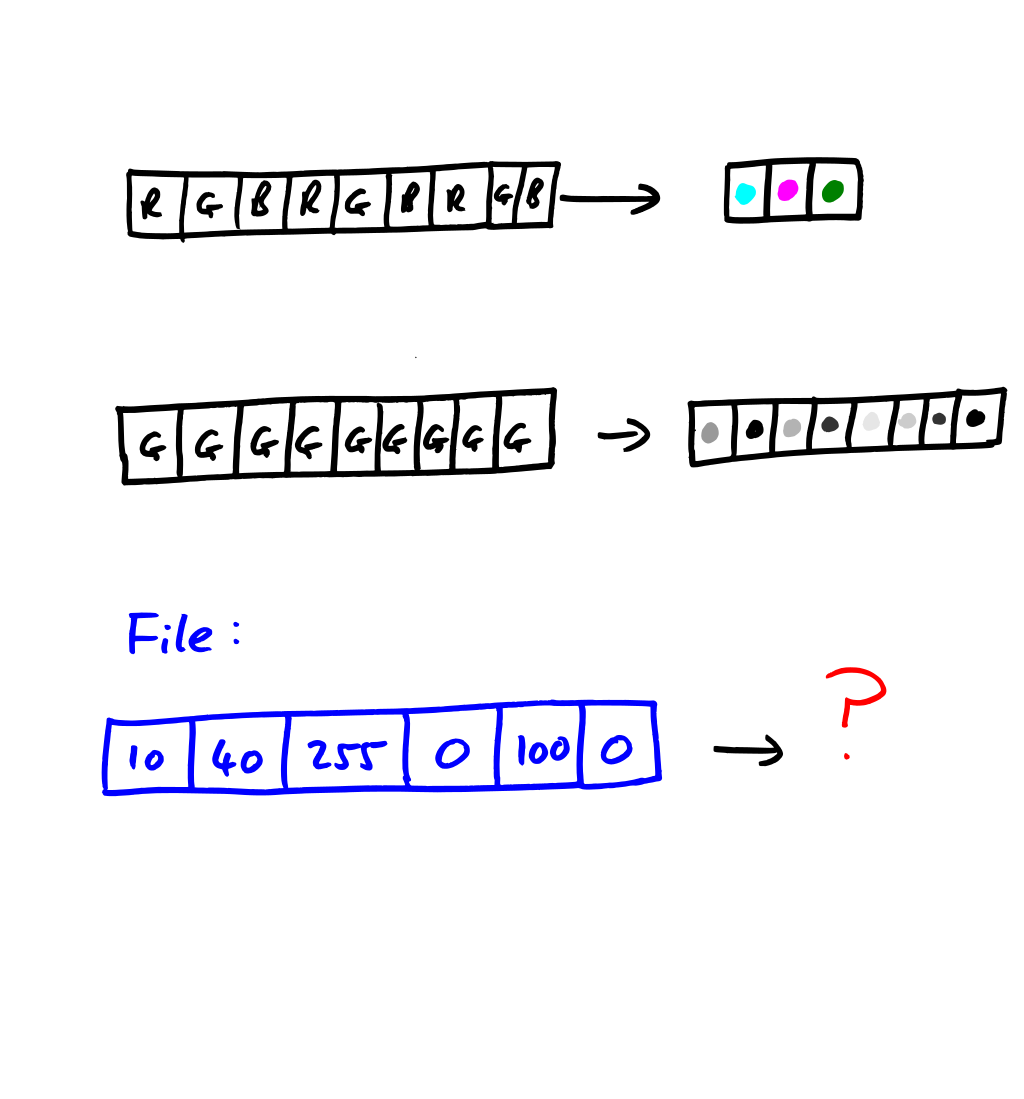 R G B R G B R G B
G G G G G G G G G
File:
10 40 255 0 100 0
?